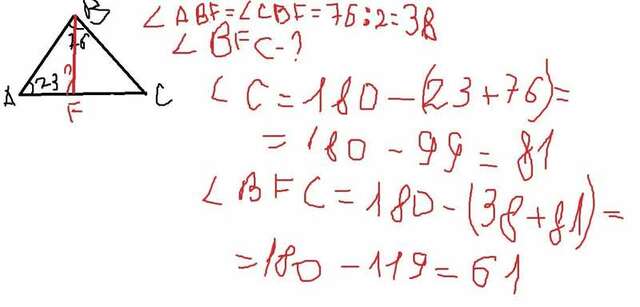 B
76
23
?
A
F
C
∠ABF=∠CBF=76:2=38
∠BFC-?
∠C=180-(23+76)=
=180-99=81
∠BFC=180-(38+81)=
=180-119=61